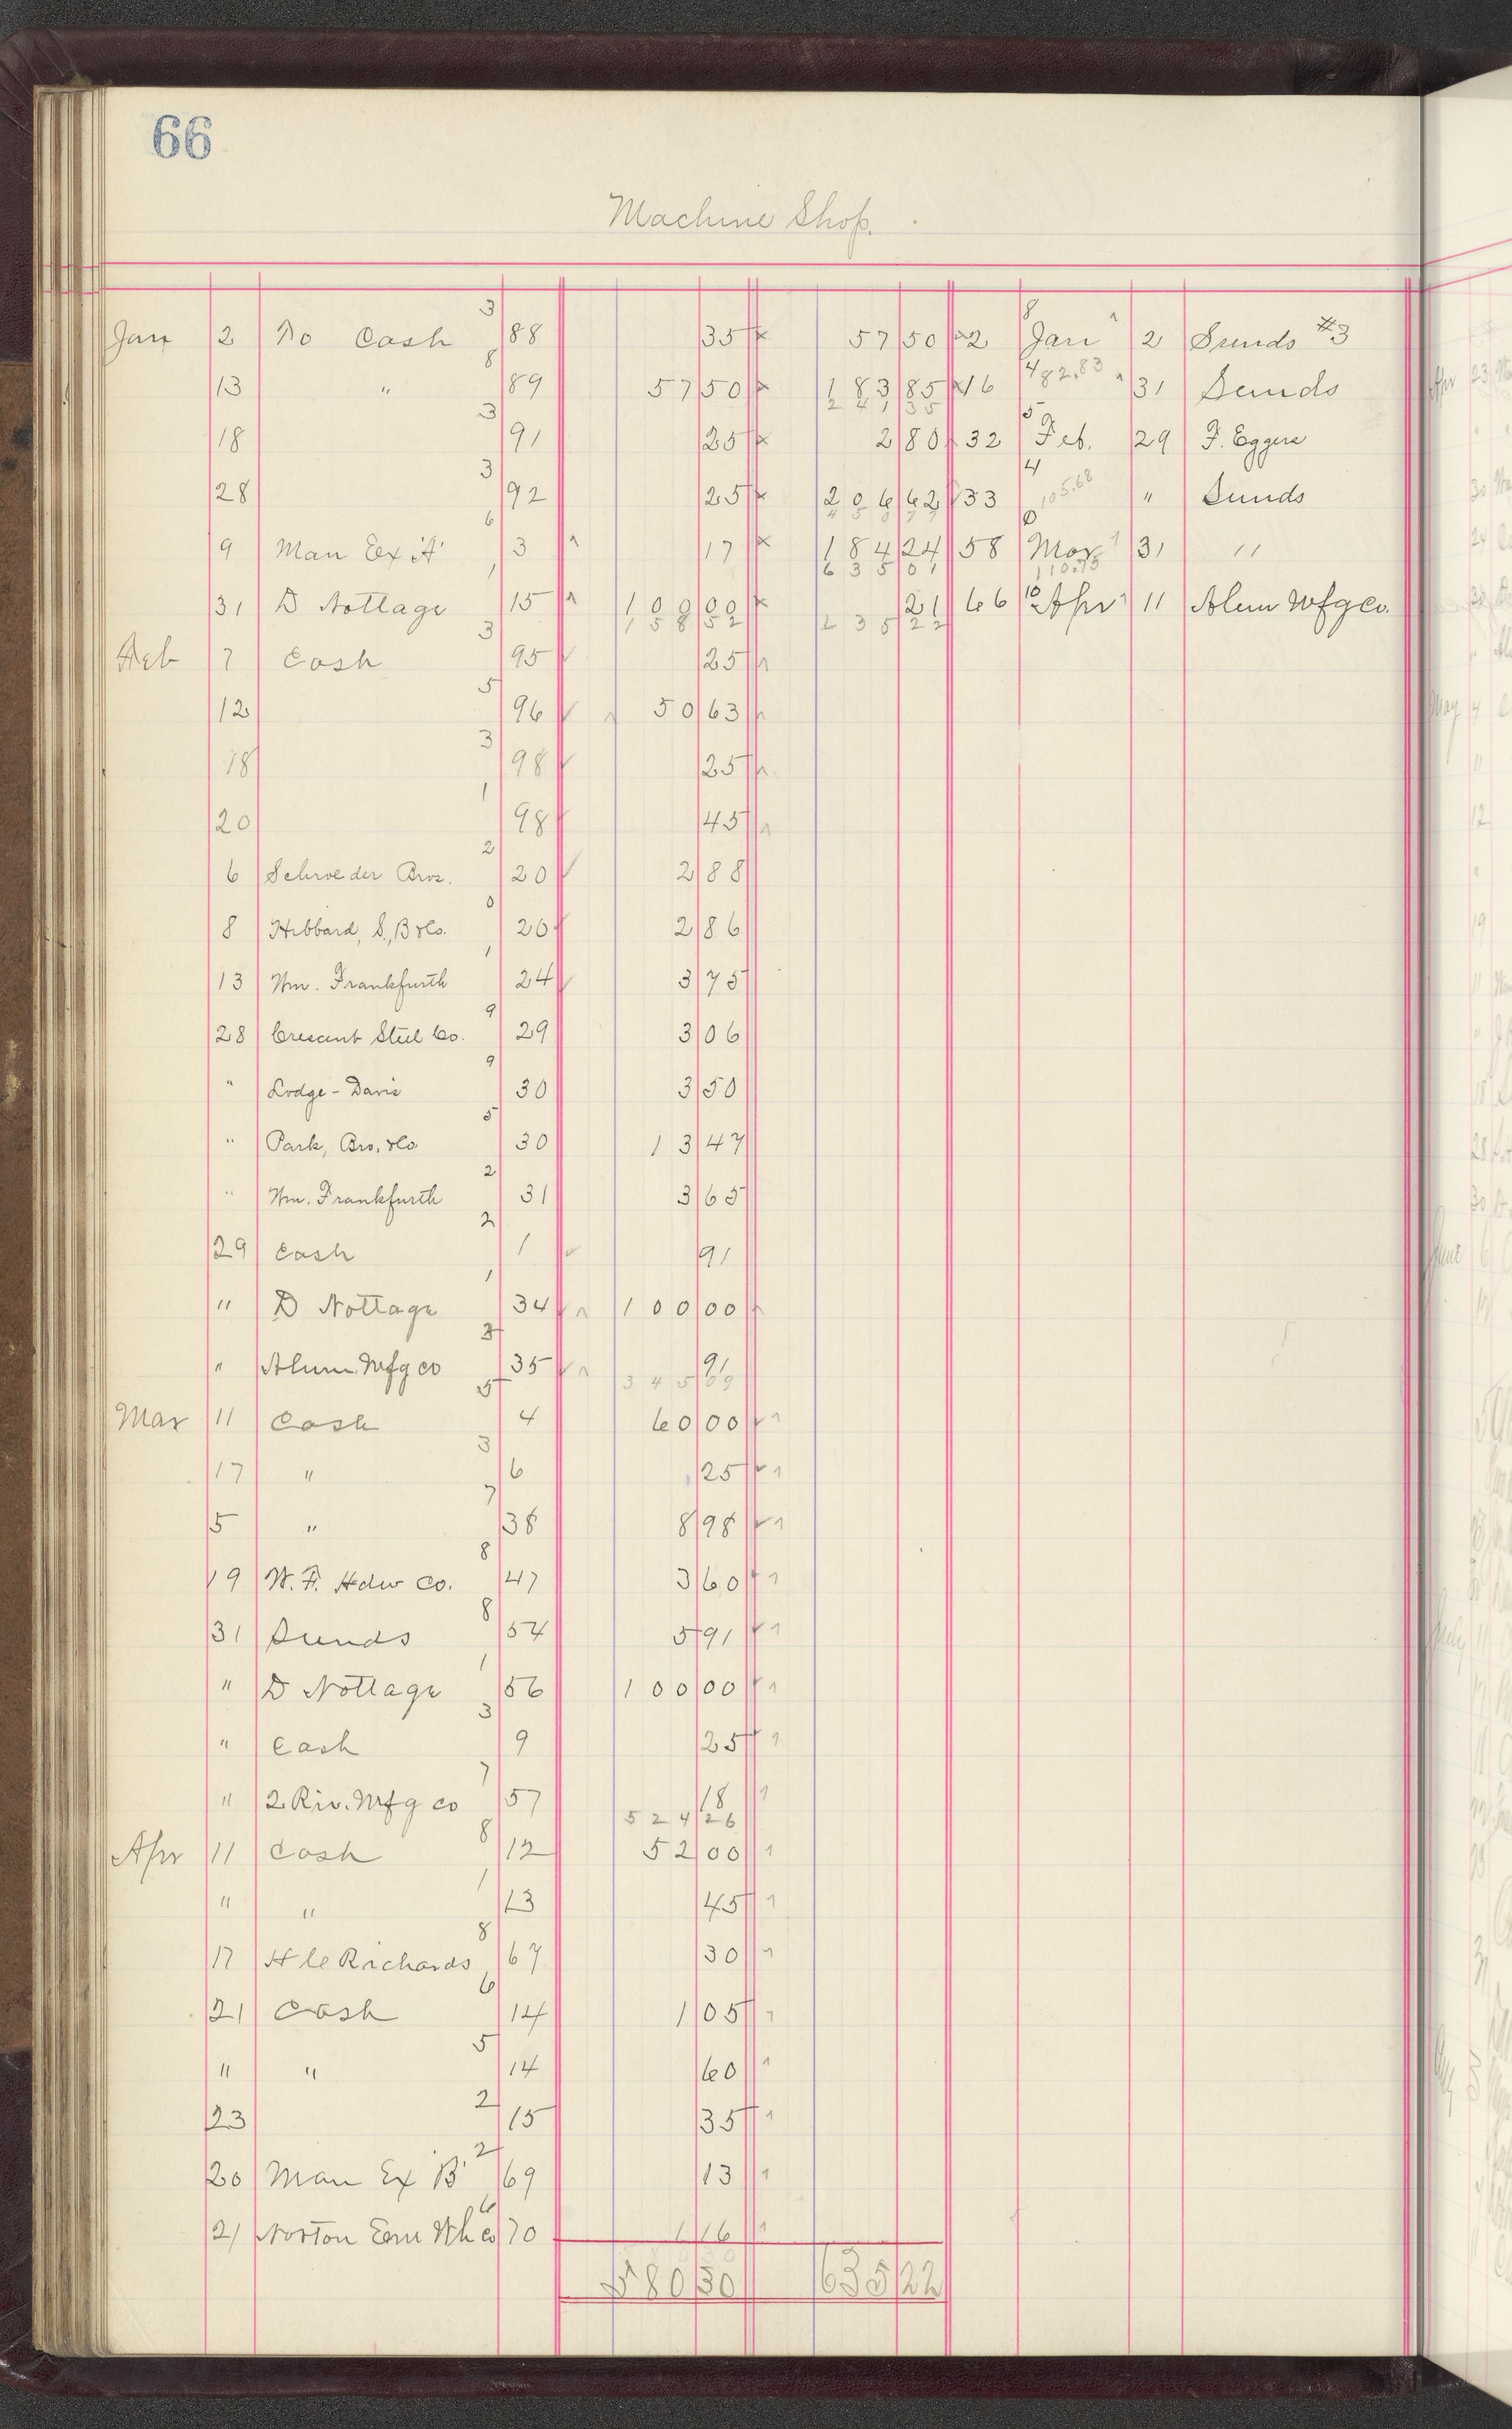 66
Machine Shop.
Jan 2 To Cash 3 88 35 57 50 2 8 Jan 2 Sunds #3
13 " 8 89 57 50 183 85 16 482.83 31 Sunds
241 35
18 3 91 25 2 80 32 5 Feb. 29 F. Eggers
28 3 92 25 206 62 33 4 105.68 " Sunds
9 Man Ex 'A' 6 3 17 184 24 58 0 Mar 31 "
635 01 110.75
31 D Nottage 1 15 100 00 21 66 10 Apr 11 Alum Mfg Co.
158 52 635 22
Feb 7 Cash 3 95 25
12 5 96 50 63
18 3 98 25
20 1 98 45
6 Schroeder Bros. 2 20 2 88
8 Hibbard, S., B & Co. 0 26 2 86
13 Wm. Frankfurth 1 24 3 75
28 Crescent Steel Co. 9 29 3 06
" Lodge - Davis 9 30 3 50
" Park, Bro. & Co. 5 30 13 47
" Wm. Frankfurth 2 31 3 65
29 Cash 2 1 91
" D Nottage 1 34 100 00
" Alum. Mfg co 35 91
345 69
Mar 11 Cash 5 4 60 00
17 " 3 6 25
5 " 7 38 8 98
19 W. F. Hdw Co. 8 47 3 60
31 Sunds 8 54 5 91
" D Nottage 1 56 100 00
" Cash 3 9 25
" 2 Riv. Mfg co 7 57 18
524 26
Apr 11 Cash 8 12 52 00
" " 1 13 45
17 H C Richards 8 67 30
21 Cash 6 14 1 05
" " 5 14 60
23 2 15 35
20 Man Ex 'B' 2 69 13
21 Norton Em Wh Co 6 70 1 16
580 30 635 22